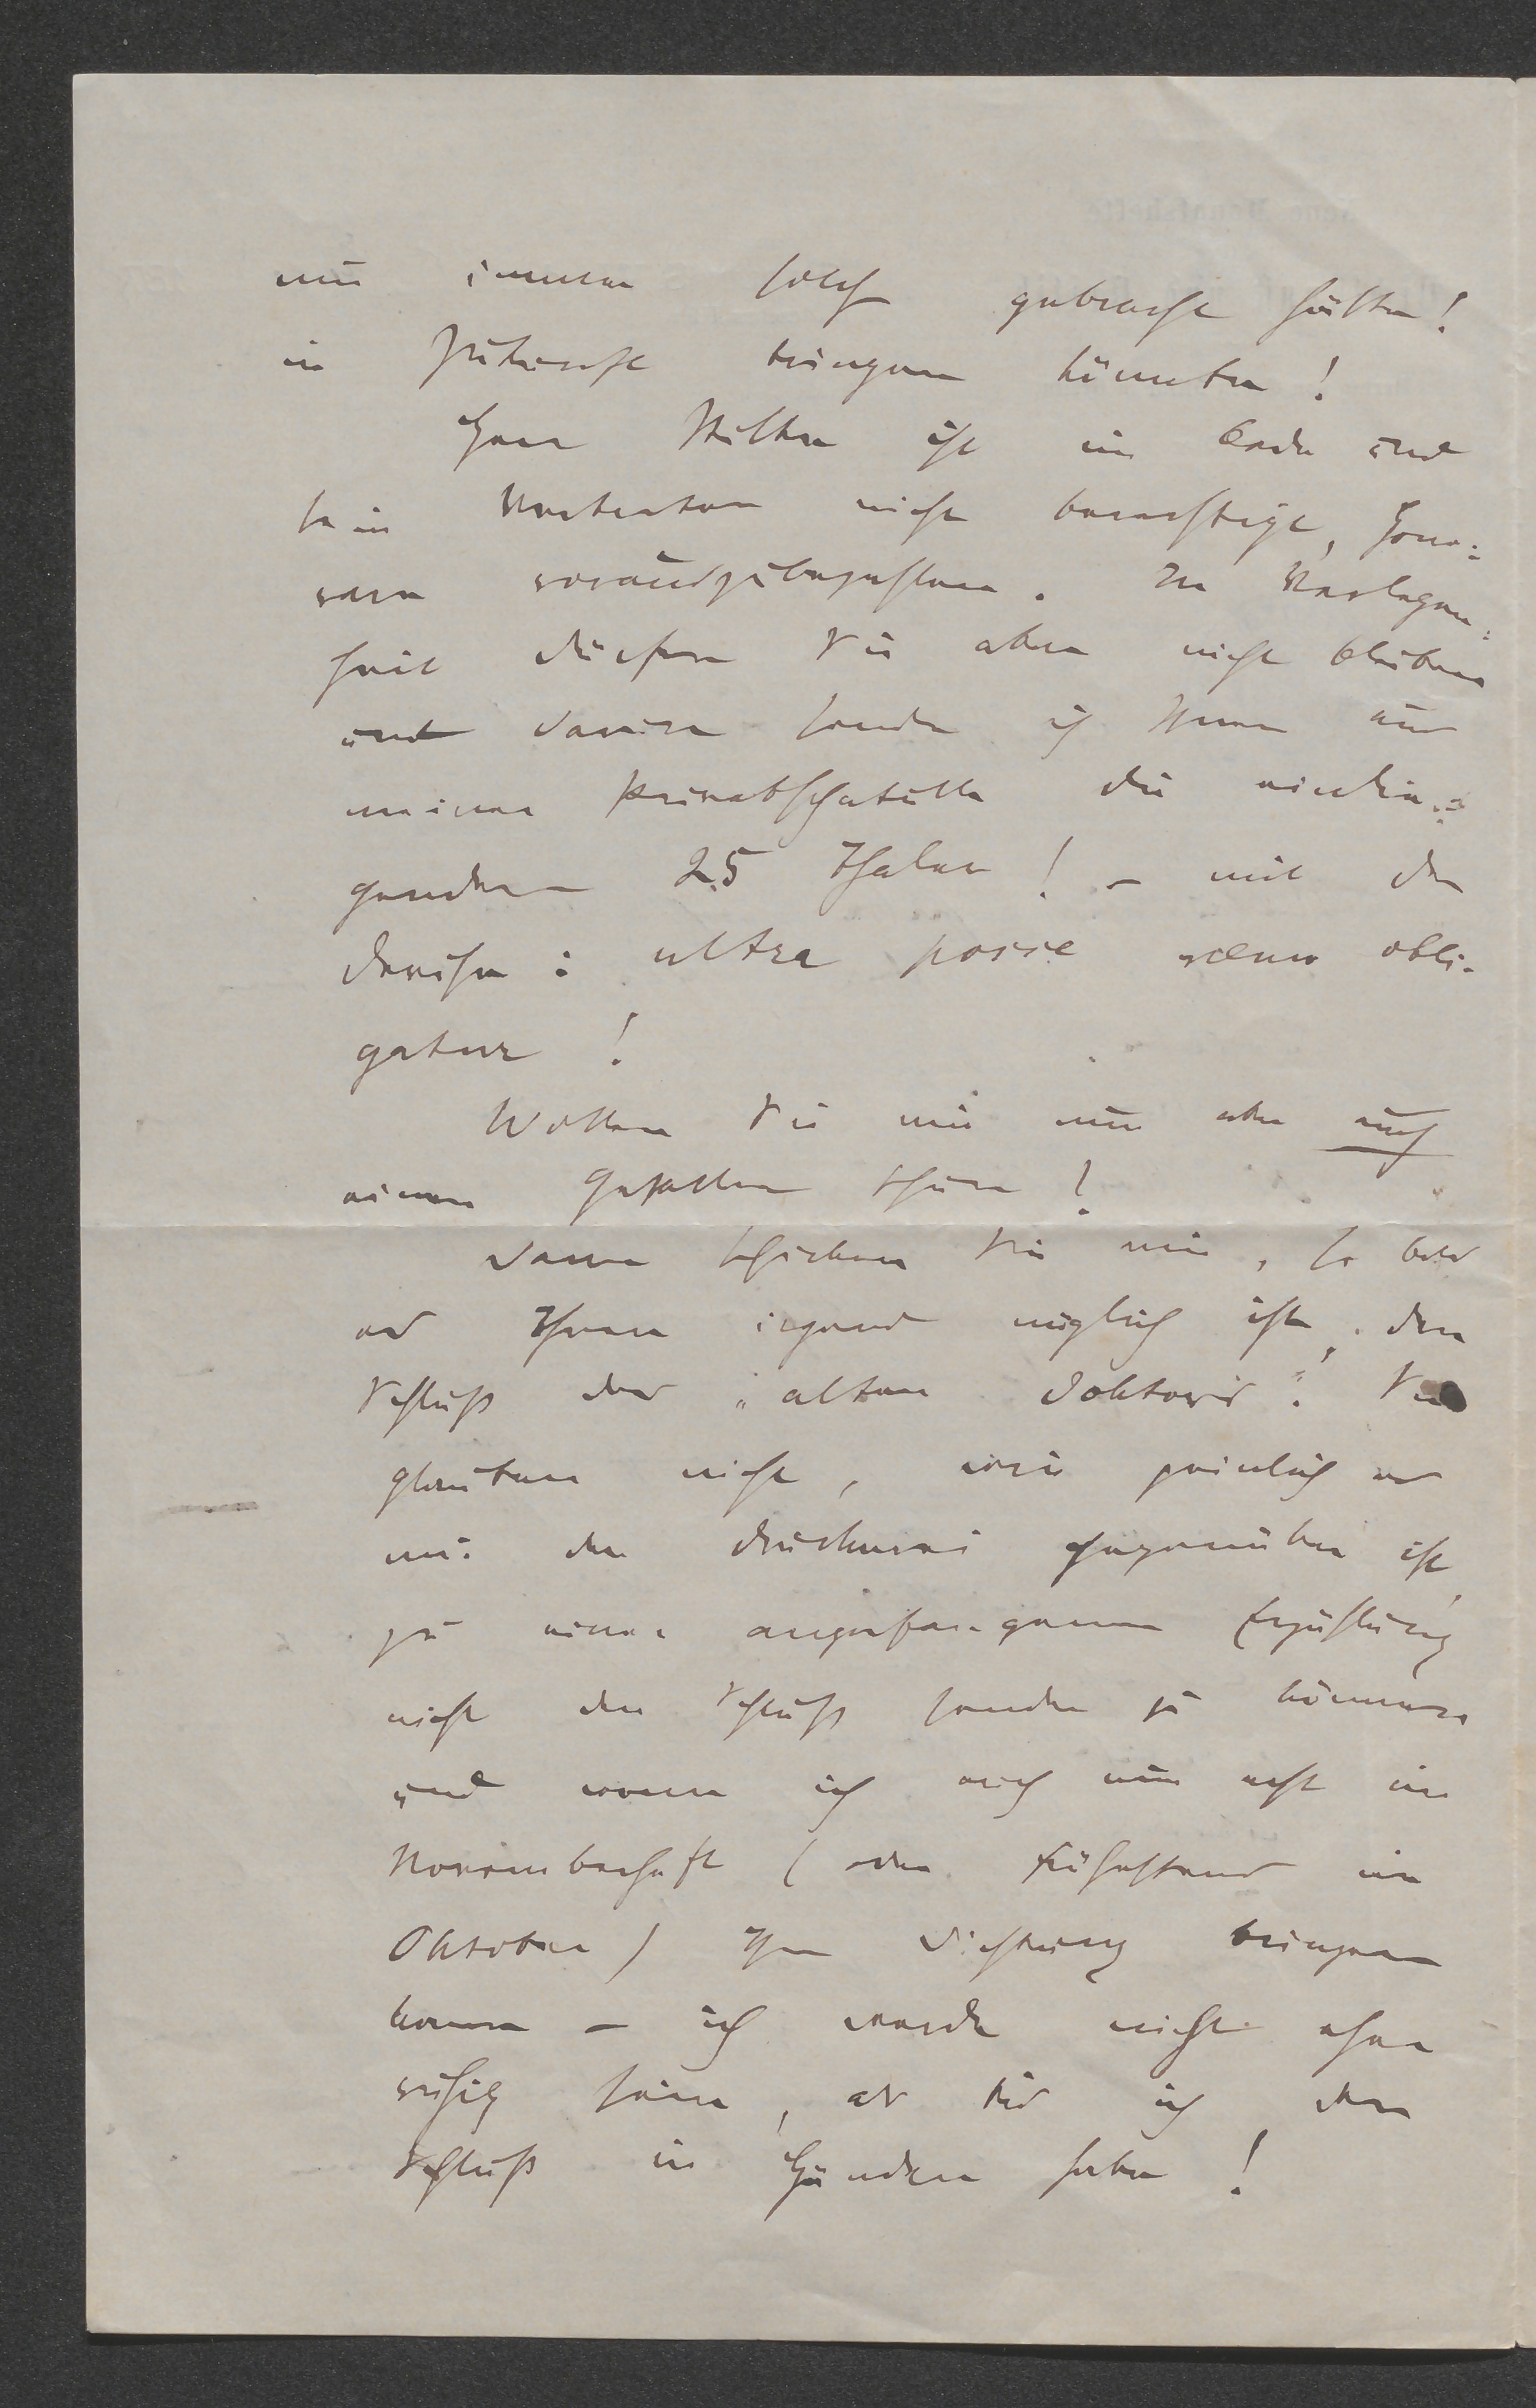 nur immer solch gebracht hätten!
in Zukunft bringen könnten!
Herr Stilke ist im Bade und
sein Vertreter nicht berechtigt, Hono-
rare vorauszubezahlen. In Verlegen-
heit dürfen Sie aber nicht bleiben
und darum sende ich Ihnen aus
meiner Privatschatulle die einlie-
genden 25 Thaler! – mit der
Devise: ultra posse nemo obli-
gatur!
Wollen Sie mir nun aber auch
einen Gefallen thun?
Dann schicken Sie mir, so bald
es Ihnen irgend möglich ist, den
Schluß des „alten Doktors". Sie
glauben nicht, wie peinlich es
mir der Druckerei gegenüber ist,
zu einer angefangenen Erzählung
nicht den Schluß senden zu können
und wenn ich auch nun erst im
Novemberheft (oder frühestens im
Oktober) Ihre Dichtung bringen
kann – ich werde nicht eher
ruhig sein, als bis ich den
Schluß in Händen habe!